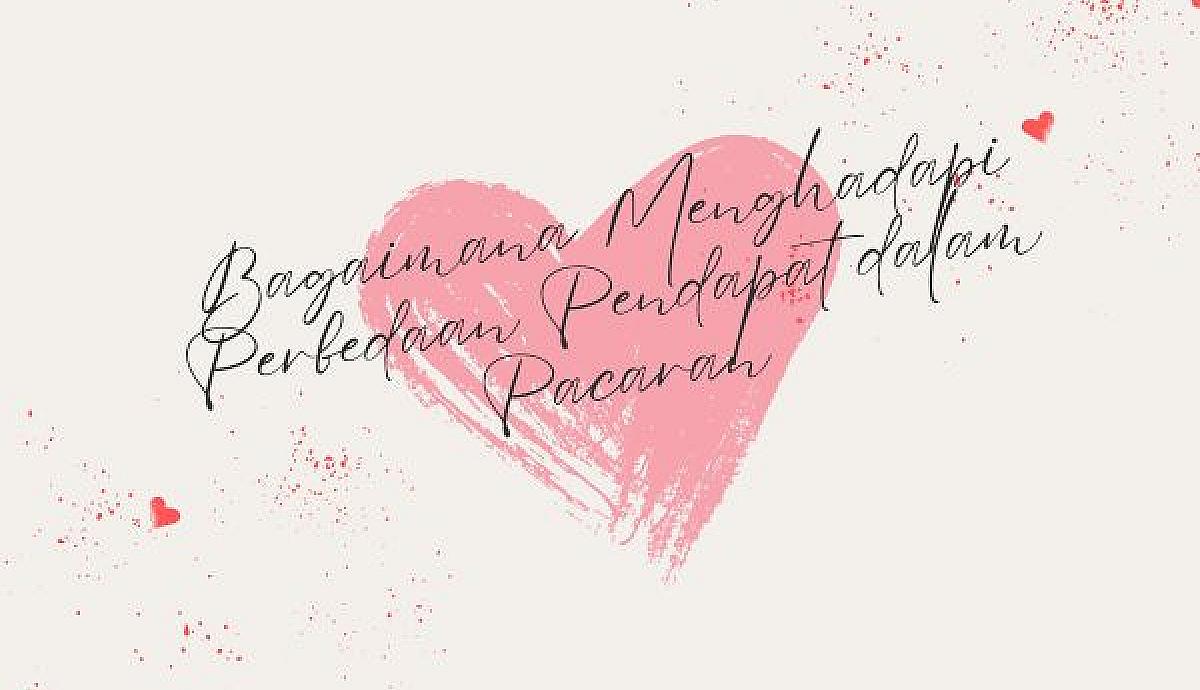 Bagaimana Menghadapi
Perbedaan Pendapat dalam
Pacaran